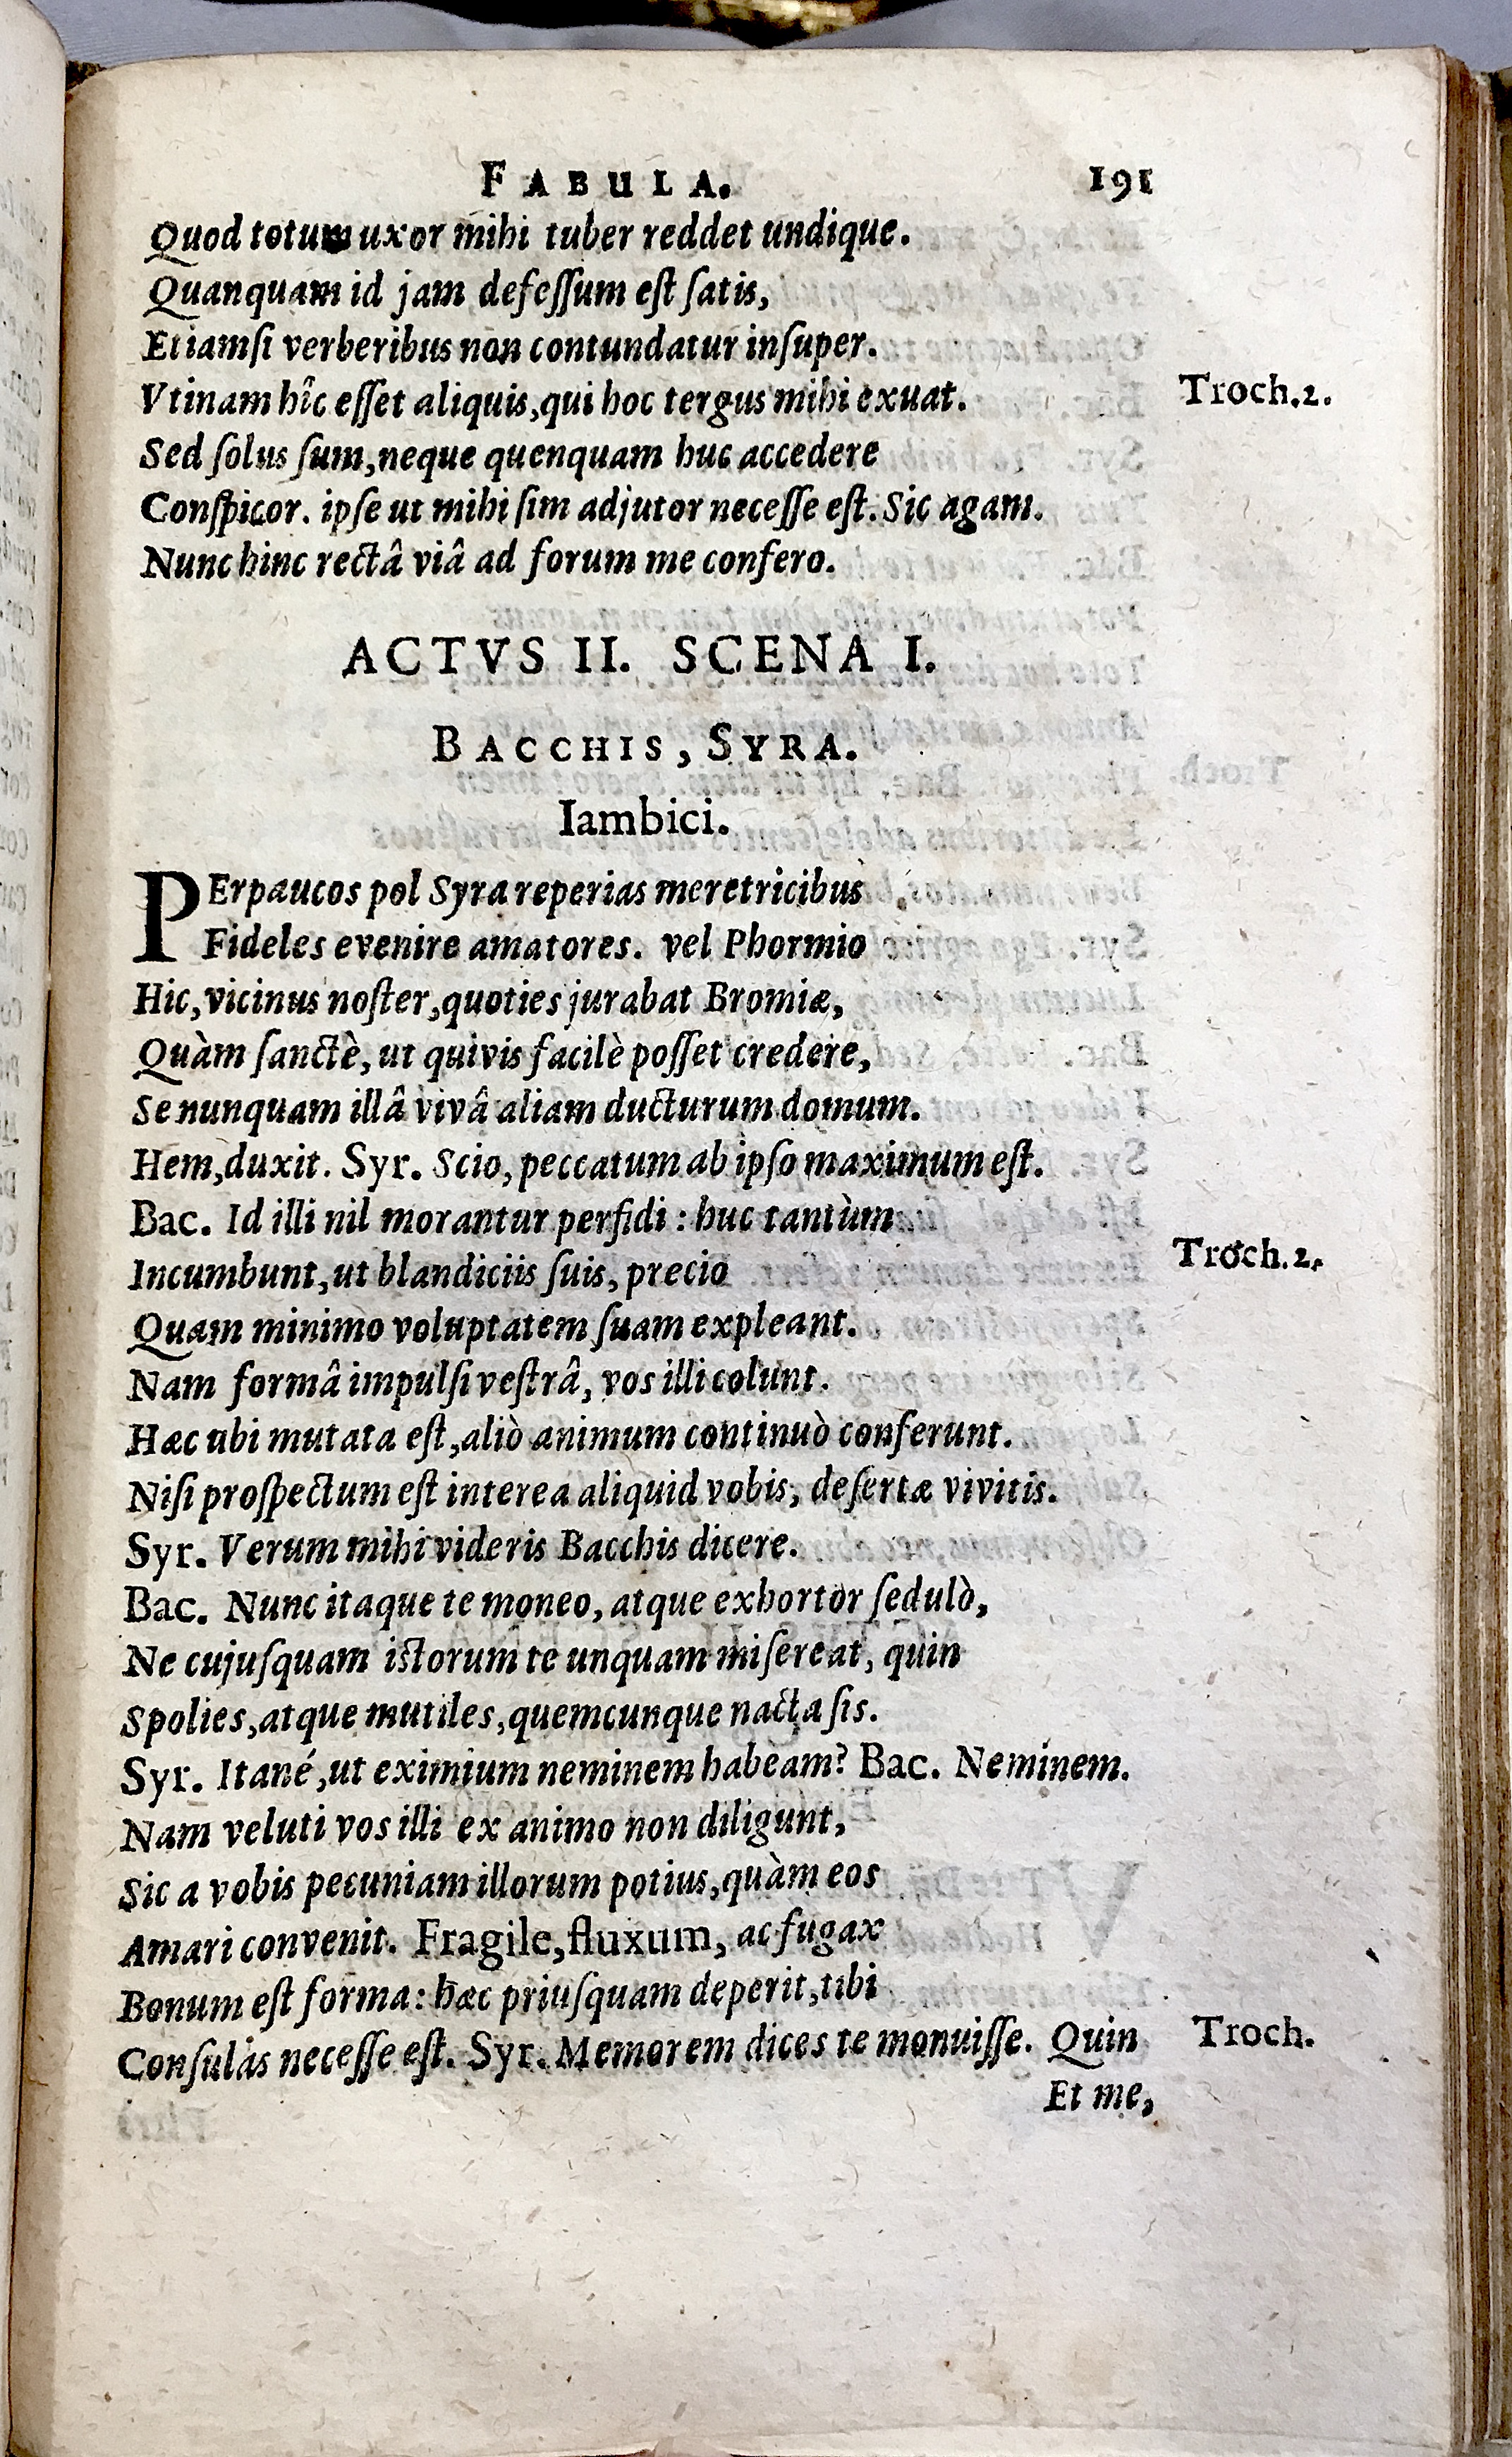 FABULA. 191
Quod totum uxor mihi tuber reddet undique.
Quanquam id jam defeſſum eſt ſatis,
Etiamſi verberibus non contundatur inſuper.
Vtinam hîc eſſet aliquis, qui hoc tergus mihi exuat. Troch. 2.
Sed ſolus ſum, neque quenquam huc accedere
Conſpicor. ipſe ut mihi ſim adjutor neceſſe eſt. Sic agam.
Nunc hinc rectâ viâ ad forum me confero.
ACTVS II. SCENA I.
BACCHIS, SYRA.
Iambici.
PErpaucos pol Syra reperias meretricibus
Fideles evenire amatores. vel Phormio
Hic, vicinus noſter, quoties jurabat Bromiæ,
Quàm ſanctè, ut quivis facilè poſſet credere,
Se nunquam illâ vivâ aliam ducturum domum.
Hem, duxit. Syr. Scio, peccatum ab ipſo maximum eſt.
Bac. Id illi nil morantur perfidi : huc tantùm
Incumbunt, ut blandiciis ſuis, precio Troch. 2.
Quam minimo voluptatem ſuam expleant.
Nam formâ impulſi veſtrâ, vos illi colunt.
Hæc ubi mutata eſt, aliò animum continuò conferunt.
Niſi proſpectum eſt interea aliquid vobis, deſertæ vivitis.
Syr. Verum mihi videris Bacchis dicere.
Bac. Nunc itaque te moneo, atque exhortor ſedulò,
Ne cujuſquam istorum te unquam miſereat, quin
Spolies, atque mutiles, quemcunque nacta ſis.
Syr. Itané, ut eximium neminem habeam? Bac. Neminem.
Nam veluti vos illi ex animo non diligunt,
Sic a vobis pecuniam illorum potius, quàm eos
Amari convenit. Fragile, fluxum, ac fugax
Bonum eſt forma : hæc priuſquam deperit, tibi
Conſulas neceſſe eſt. Syr. Memorem dices te monuiſſe. Quin Troch.
Et me,